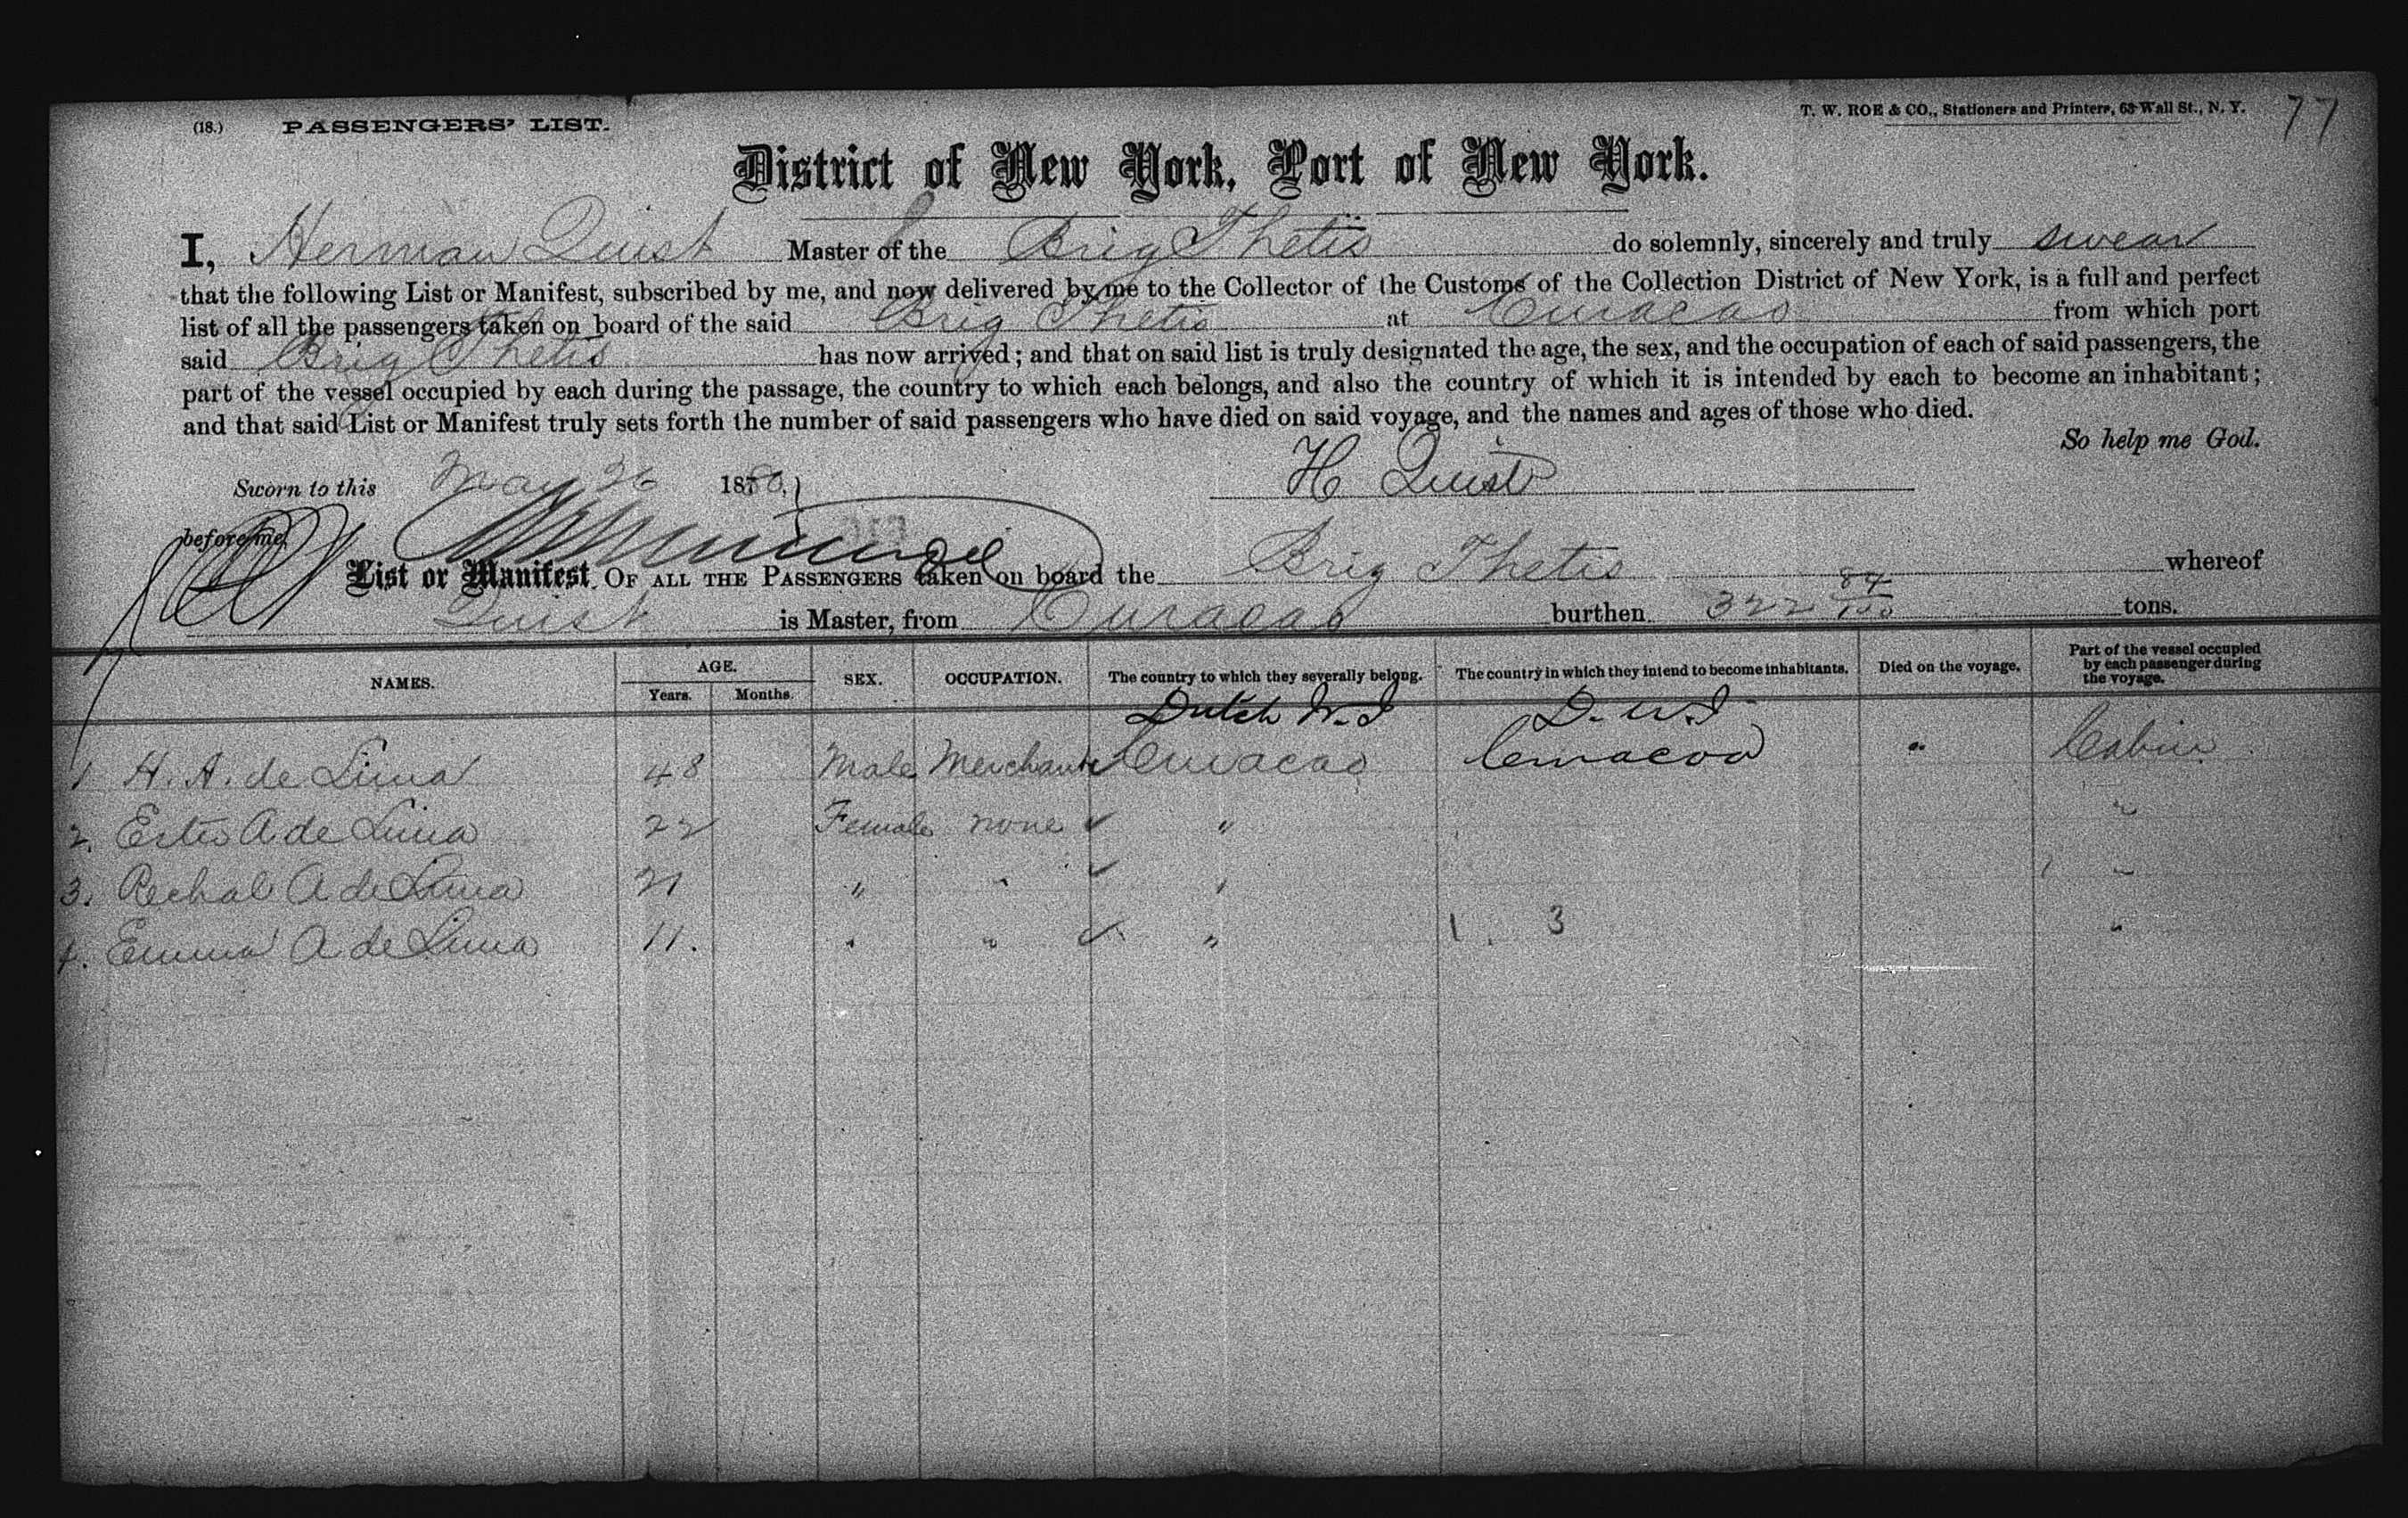 (18.) PASSENGERS' LIST.
T. W. ROE & CO., Stationers and Printers, 63 Wall St., N. Y. 77
District of New York, Port of New York.
I, Herman Quist Master of the Brig Thetis do solemnly, sincerely and truly swear
that the following List or Manifest, subscribed by me, and now delivered by me to the Collector of the Customs of the Collection District of New York, is a full and perfect
list of all the passengers taken on board of the said Brig Thetis at Curacao from which port
said Brig Thetis has now arrived; and that on said list is truly designated the age, the sex, and the occupation of each of said passengers, the
part of the vessel occupied by each during the passage, the country to which each belongs, and also the country of which it is intended by each to become an inhabitant;
and that said List or Manifest truly sets forth the number of said passengers who have died on said voyage, and the names and ages of those who died.
So help me God.
Sworn to this May 26 1880. H Quist
before me,
List or Manifest OF ALL THE PASSENGERS taken on board the Brig Thetis whereof
Quist is Master, from Curacao burthen 322 84/100 tons.
NAMES. AGE. Years. Months. SEX. OCCUPATION. The country to which they severally belong. The country in which they intend to become inhabitants. Died on the voyage. Part of the vessel occupied by each passenger during the voyage.
Dutch W. I D. W. I
1 H. A. de Lima 48 Male Merchant Curacao Curacoa " Cabin
2. Ester A de Lima 22 Female none " "
3. Rechal A de Lima 21 " " " "
4. Emma A de Lima 11. " " " 1. 3 "